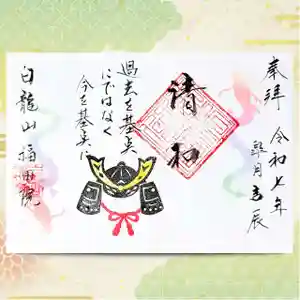 奉拝
令和七年
皐月吉辰
清和
過去を基点
にではなく
今を基点に
白龍山福田院